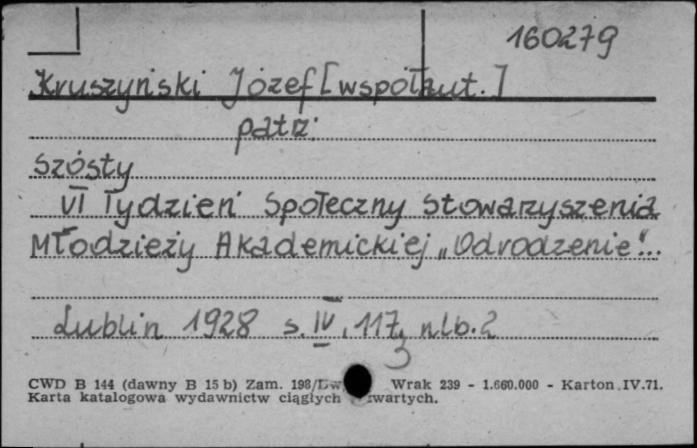 160279
Kruszyński Józef [współaut.]
patrz:
Szósty
VI Tydzień Społeczny Stowarzyszenia
Młodzieży Akademickiej „Odrodzenie"...
Lublin 1928 s. IV, 117, nlb. 2
3
CWD B 144 (dawny B 15 b) Zam. 198/ Wrak 239 - 1.660.000 - Karton IV.71.
Karta katalogowa wydawnictw ciągłych